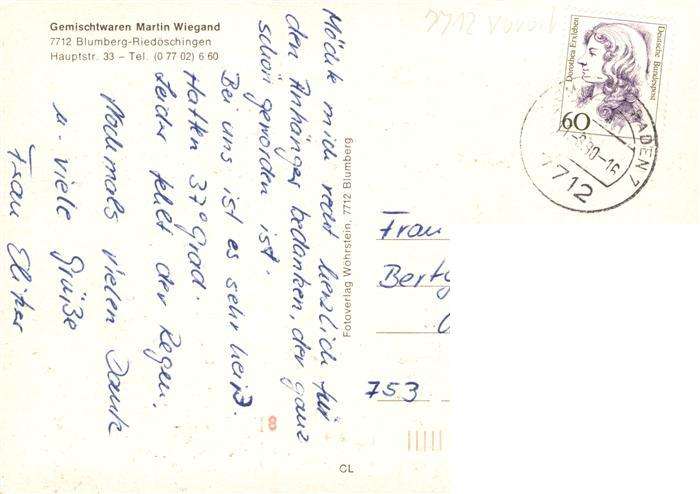 Gemischtwaren Martin Wiegand
7712 Blumberg-Riedöschingen
Hauptstr. 33 – Tel. (0 77 02) 6 60
Möchte mich recht herzlich für
den Anhänger bedanken, der ganz
schön geworden ist.
Bei uns ist es sehr heiß.
Hatten 37° Grad.
Leider fehlt der Regen.
Nochmals vielen Dank
u. viele Grüße
Frau
Fotoverlag Wöhrstein, 7712 Blumberg
Dorothea Erxleben
Deutsche Bundespost
60
ADEN 7
90-16
7712
Frau
Bert
753
8
CL